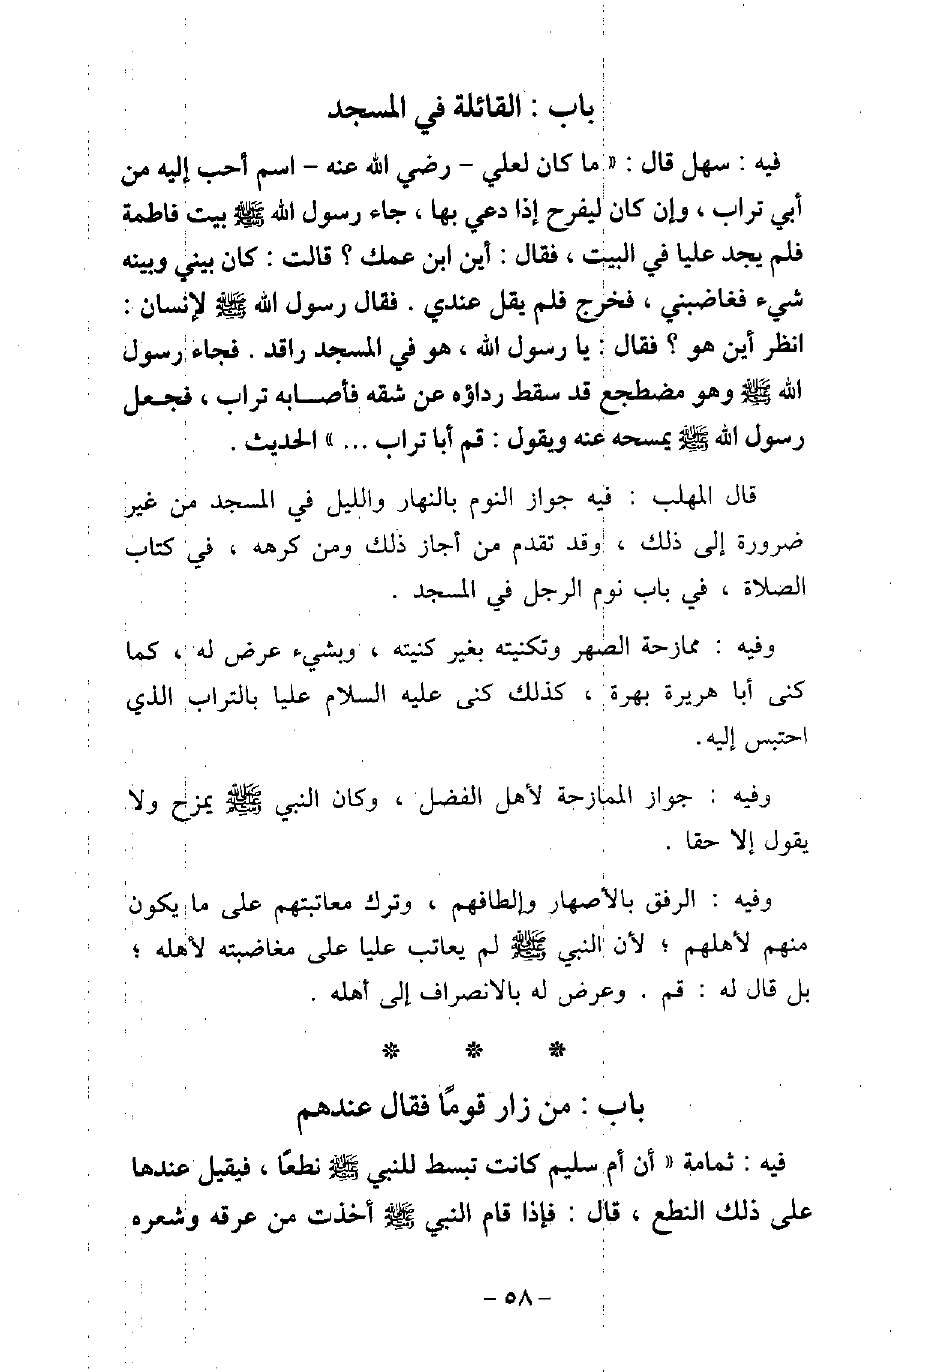 باب : القائلة في المسجد
فيه : سهل قال : « ما كان لعلي - رضي الله عنه - اسم أحب إليه من
أبي تراب ، وإن كان ليفرح إذا دعي بها ، جاء رسول الله ﷺ بيت فاطمة
فلم يجد عليا في البيت ، فقال : أين ابن عمك ؟ قالت : كان بيني وبينه
شيء فغاضبني ، فخرج فلم يقل عندي . فقال رسول الله ﷺ لإنسان :
انظر أين هو ؟ فقال : يا رسول الله ، هو في المسجد راقد . فجاء رسول
الله ﷺ وهو مضطجع قد سقط رداؤه عن شقه فأصابه تراب ، فجعل
رسول الله ﷺ يمسحه عنه ويقول : قم أبا تراب ... » الحديث .
قال المهلب : فيه جواز النوم بالنهار والليل في المسجد من غير
ضرورة إلى ذلك ، وقد تقدم من أجاز ذلك ومن كرهه ، في كتاب
الصلاة ، في باب نوم الرجل في المسجد .
وفيه : ممازحة الصهر وتكنيته بغير كنيته ، وبشيء عرض له ، كما
كنى أبا هريرة بهرة ، كذلك كنى عليه السلام عليا بالتراب الذي
احتبس إليه.
وفيه : جواز الممازحة لأهل الفضل ، وكان النبي ﷺ يمزح ولا
يقول إلا حقا .
وفيه : الرفق بالأصهار وإلطافهم ، وترك معاتبتهم على ما يكون
منهم لأهلهم ؛ لأن النبي ﷺ لم يعاتب عليا على مغاضبته لأهله ؛
بل قال له : قم . وعرض له بالانصراف إلى أهله .
* * *
باب : من زار قومًا فقال عندهم
فيه : ثمامة « أن أم سليم كانت تبسط للنبي ﷺ نطعًا ، فيقيل عندها
على ذلك النطع ، قال : فإذا قام النبي ﷺ أخذت من عرقه وشعره
- ٥٨ -